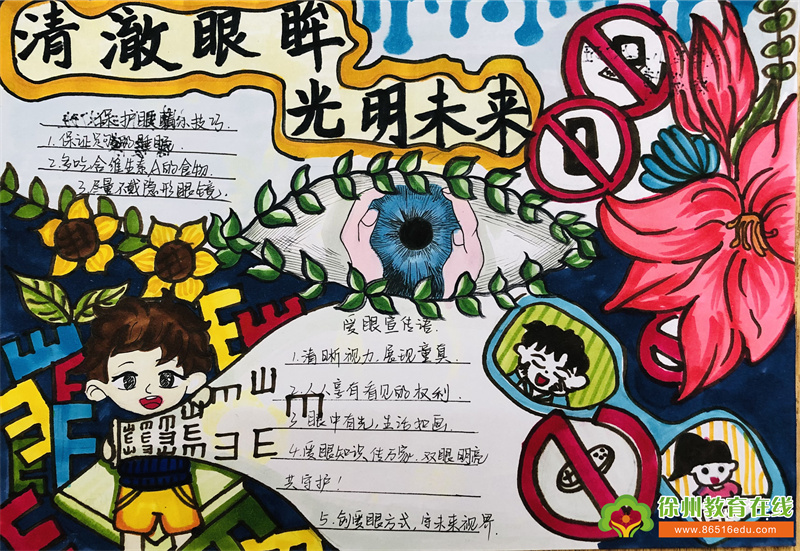 清澈眼眸
光明未来
保护眼睛小技巧.
1.保证足够的睡眠
2.多吃含维生素A的食物.
3.尽量不戴隐形眼镜.
爱眼宣传语.
1.清晰视力,展现童真.
2.人人享有看见的权利.
3.眼中有光,生活如画.
4.爱眼知识传万家.双眼明亮
共守护!
5.创爱眼方式,守未来视界.
E
徐州教育在线
www.86516edu.com